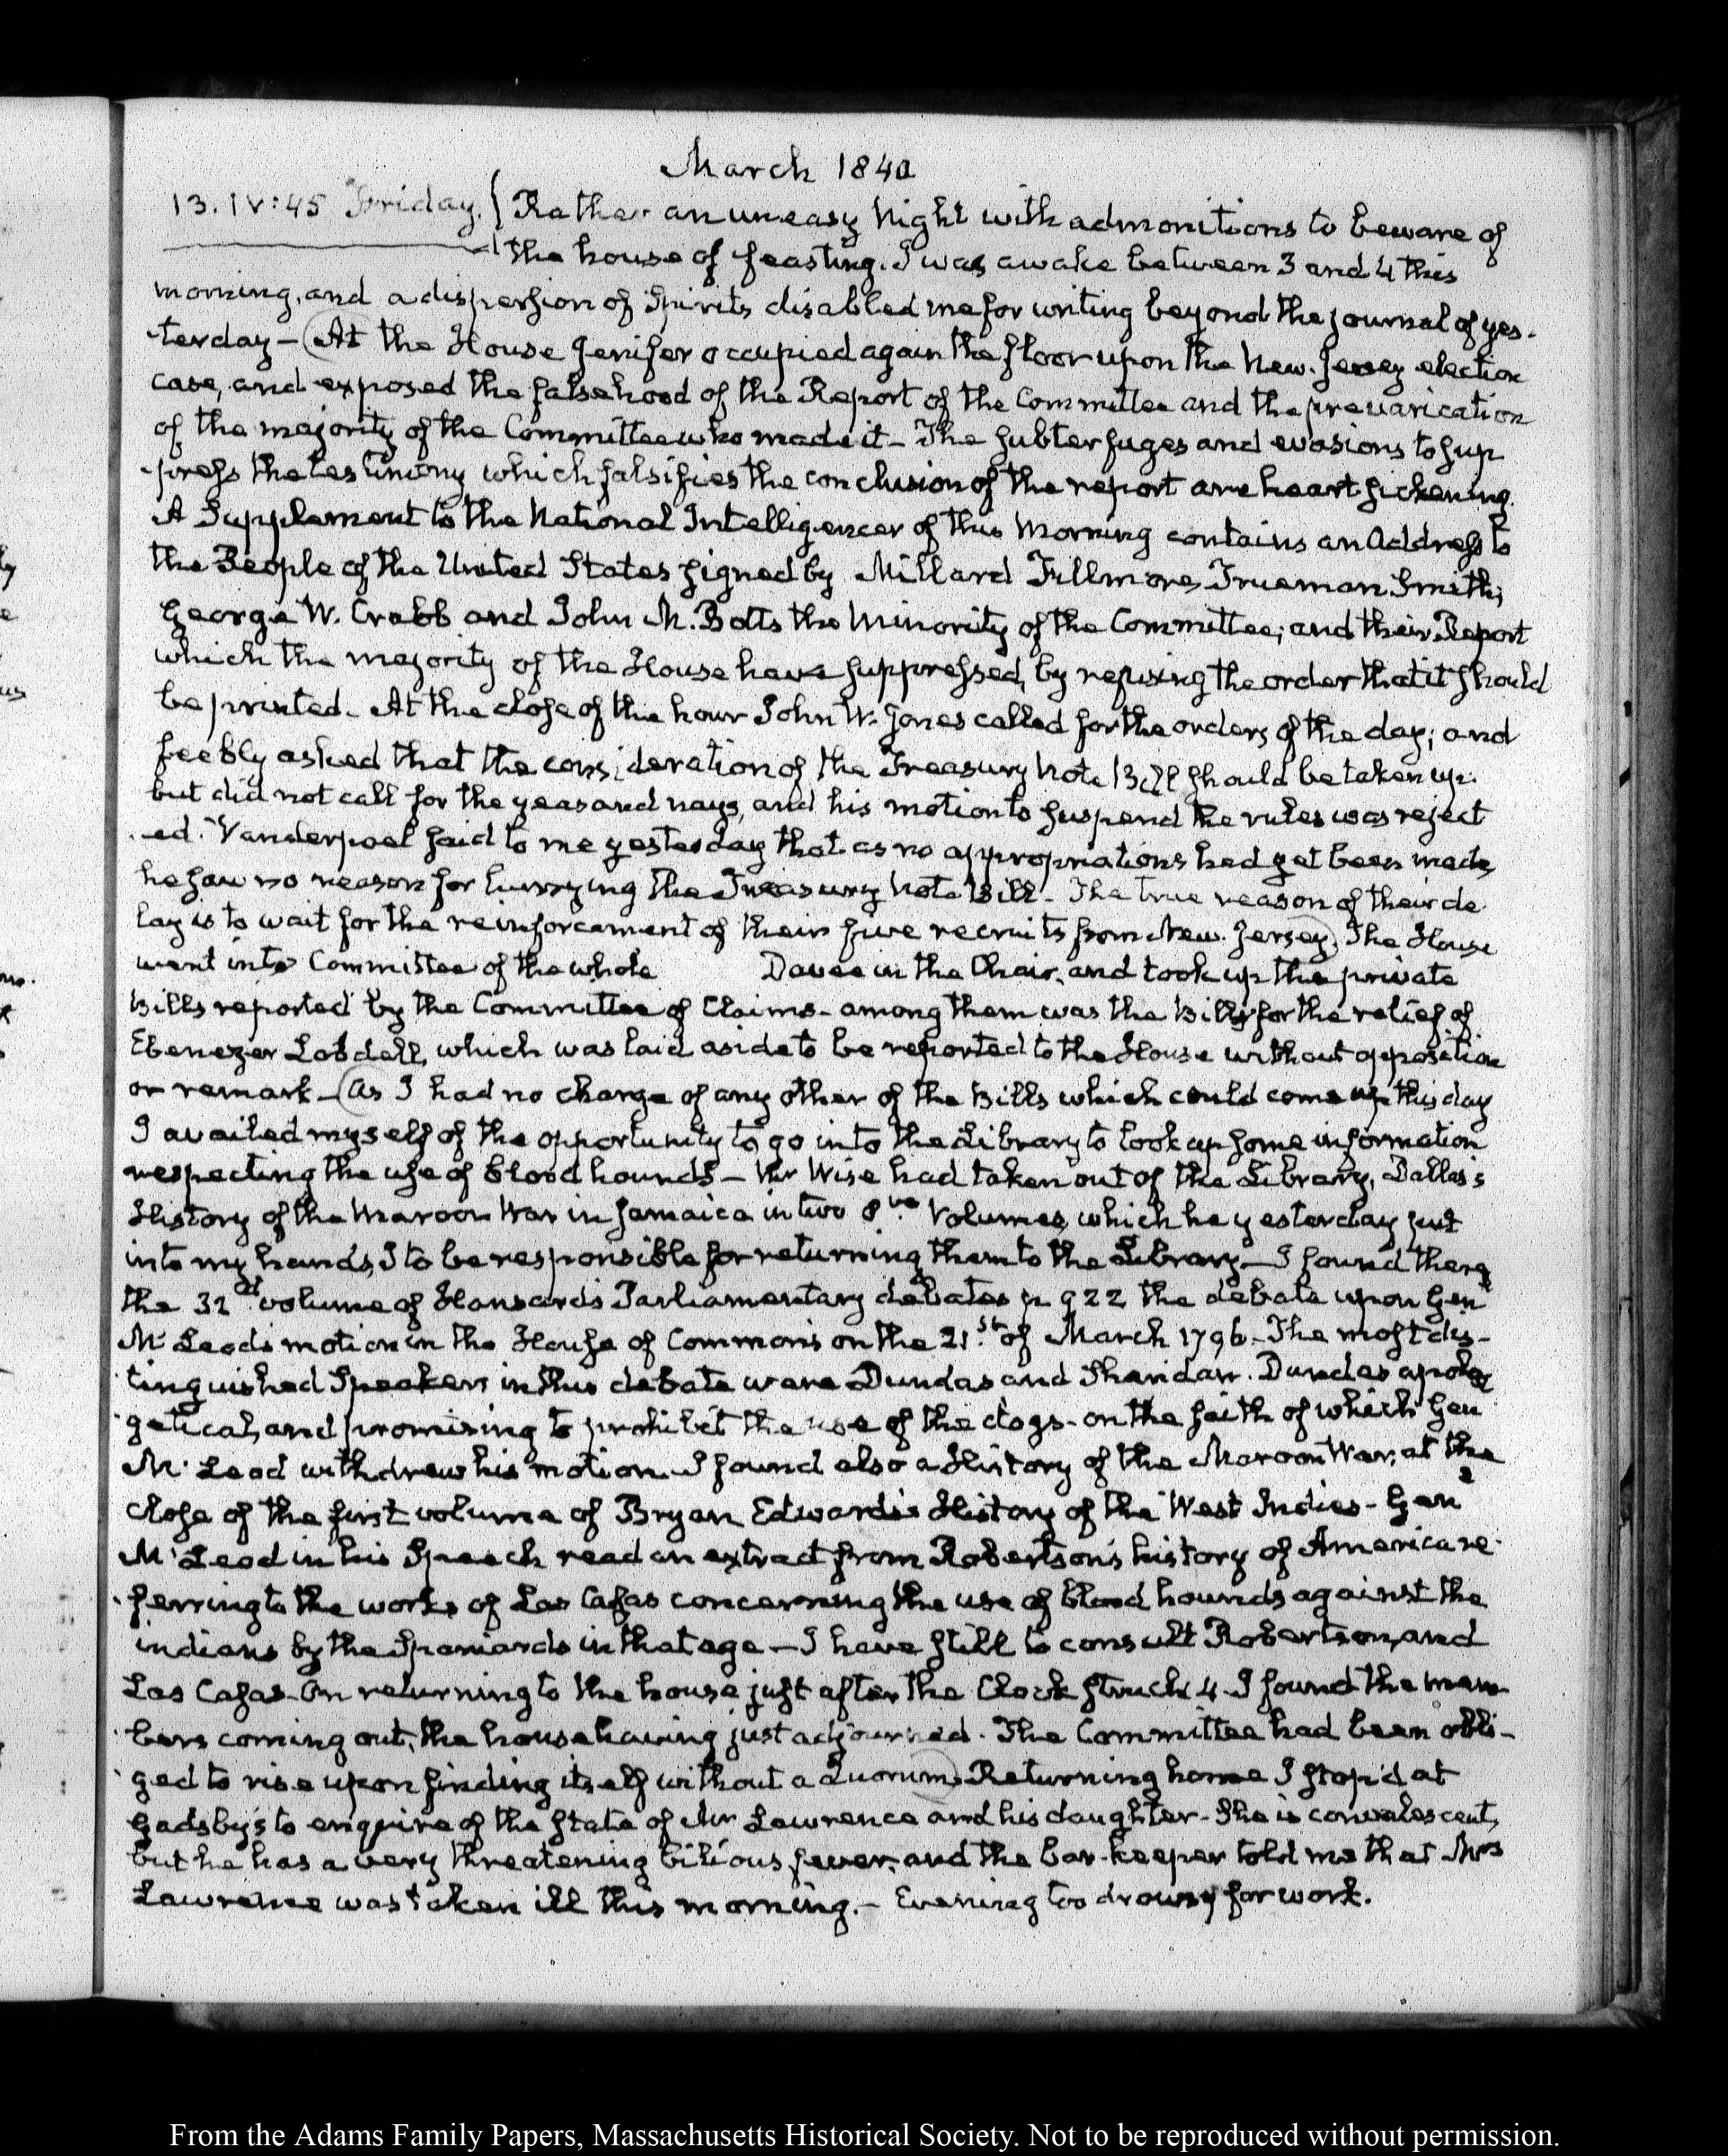 March 1840
13. IV:45 Friday. Rather an uneasy Night with admonitions to beware of
the house of feasting. I was awake between 3 and 4 this
morning, and a dispersion of Spirits disabled me for writing beyond the journal of yes-
-terday — At the House Jenifer occupied again the floor upon the New-Jersey election
case, and exposed the falsehood of the Report of the Committee and the prevarication
of the majority of the Committee who made it — The subterfuges and evasions to sup
-press the testimony which falsifies the conclusion of the report are heart sickening.
A Supplement to the National Intelligencer of this Morning contains an Address to
the People of the United States signed by Millard Fillmore, Trueman Smith,
George W. Crabb and John M. Botts the Minority of the Committee; and their Report
which the majority of the House have suppressed, by refusing the order that it should
be printed. At the close of the hour John W. Jones called for the orders of the day; and
feebly asked that the consideration of the Treasury Note Bill should be taken up.
but did not call for the yeas and nays, and his motion to suspend the rules was reject
-ed. Vanderpoel said to me yesterday that as no appropriations had yet been made,
he saw no reason for hurrying the Treasury Note Bill — The true reason of their de
lay is to wait for the reinforcement of their five recruits from New-Jersey. The House
went into Committee of the whole Davee in the Chair, and took up the private
Bills reported by the Committee of Claims — among them was the Bill for the relief of
Ebenezer Lobdell, which was laid aside to be reported to the House without opposition
or remark — As I had no charge of any other of the Bills which could come up this day
I availed myself of the opportunity to go into the Library to look up some information
respecting the use of blood hounds — Mr Wise had taken out of the Library, Dallas's
History of the Maroon War in Jamaica in two 8vo Volumes, which he yesterday put
into my hands, I to be responsible for returning them to the Library — I found there
the 32d volume of Hansard's Parliamentary debates p. 922 the debate upon Genl
McLeod's motion in the House of Commons on the 21st of March 1796 — The most dis-
tinguished Speakers in this debate were Dundas and Sheridan. Dundas apolo
-getical, and promising to prohibit the use of the dogs — on the faith of which Genl
McLeod withdrew his motion. I found also a History of the Maroon War, at the
close of the first volume of Bryan Edwards's History of the West Indies — Genl
McLeod in his Speech read an extract from Robertson's history of America re-
-ferring to the works of Las Casas concerning the use of blood hounds against the
indians by the Spaniards in that age — I have still to consult Robertson, and
Las Casas. On returning to the house just after the Clock struck 4 I found the mem-
-bers coming out, the house having just adjourned. The Committee had been obli-
-ged to rise upon finding itself without a Quorum. Returning home I stop'd at
Gadsby's to enquire of the state of Mr Lawrence and his daughter — She is convalescent,
but he has a very threatening bilious fever, and the bar-keeper told me that Mrs
Lawrence was taken ill this morning. — Evening too drowsy for work.
From the Adams Family Papers, Massachusetts Historical Society. Not to be reproduced without permission.